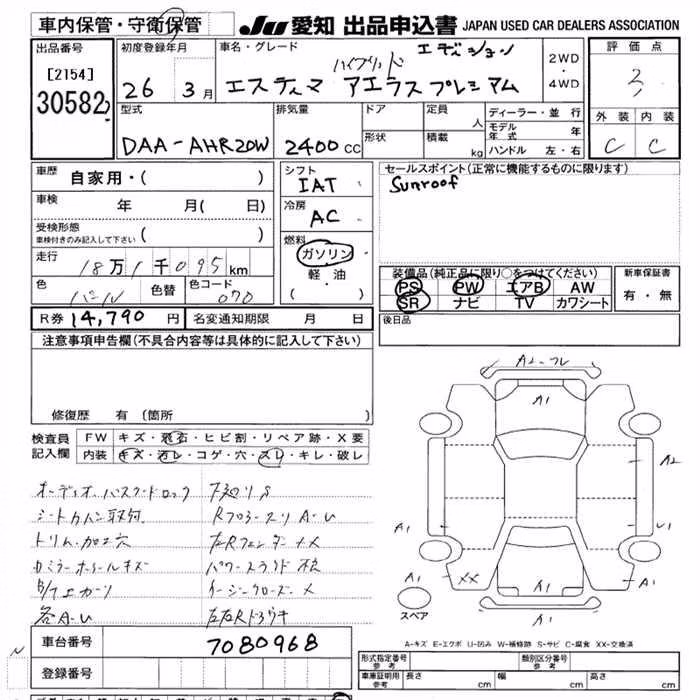 車内保管・守衛保管 JU 愛知 出品申込書 JAPAN USED CAR DEALERS ASSOCIATION
出品番号 初度登録年月 車名・グレード エディション 2WD・4WD 評価点
[2154] ハイブリッド
30582 26 3月 エスティマ アエラスプレミアム 3
型式 排気量 ドア 定員 人 ディーラー・並行 外装 内装
モデル年式 年
DAA-AHR20W 2400cc 形状 積載 kg ハンドル 左・右 C C
車歴 自家用・( ) シフト セールスポイント(正常に機能するものに限ります)
IAT Sunroof
車検 年 月( 日) 冷房
AC
受検形態
車検付きのみ記入して下さい ( ) 燃料
ガソリン
走行 18万1千095km 軽油 装備品(純正品に限り○をつけてください) 新車保証書
色 パール 色替 色コード 070 (・) PS PW エアB AW 有・無
SR ナビ TV カワシート
R券 14,790円 名変通知期限 月 日 後日品
注意事項申告欄(不具合内容等は具体的に記入して下さい)
修復歴 有(箇所
検査員記入欄 FW キズ・飛石・ヒビ割・リペア跡・X要
内装 キズ・汚レ・コゲ・穴・スレ・キレ・破レ
A2-フレ
A1
A2
A1
U1
A1
XX
A1
A1
A1
スペア
オーディオパスワードロック
シートカバー取付
トリム・加工穴
各A・U
A-キズ E-エクボ U-凹み W-補修跡 S-サビ C-腐食 XX-交換済
車台番号 7080968
登録番号
形式指定番号 参考 類別区分番号 参考
車庫証明用 参考 長さ cm 幅 cm 高さ cm